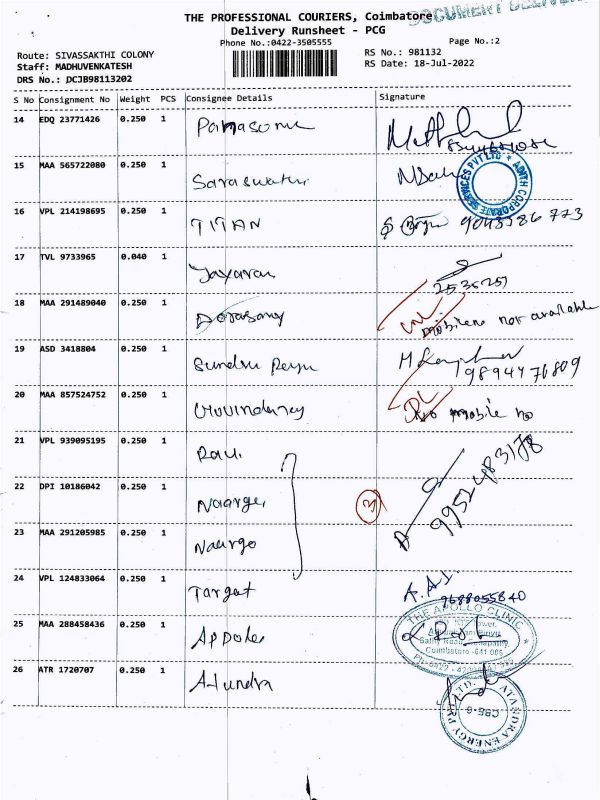 THE PROFESSIONAL COURIERS, Coimbatore
DOCUMENT
Delivery Runsheet - PCG
Phone No.:0422-3505555
Page No.:2
Route: SIVASSAKTHI COLONY
RS No.: 981132
Staff: MADHUVENKATESH
RS Date: 18-Jul-2022
DRS No.: DCJB98113202
S No Consignment No Weight PCS Consignee Details Signature
14 EDQ 23771426 0.250 1 Panasonic
15 MAA 565722080 0.250 1 Saraswathi
ADITH CORPORATE SERVICES PVT LTD *
16 VPL 214198695 0.250 1 TITAN
17 TVL 9733965 0.040 1 Jayaram
18 MAA 291489040 0.250 1 Dorasamy
mobile no not available
19 ASD 3418804 0.250 1 9894476809
20 MAA 857524752 0.250 1 DL
No mobile no
21 VPL 939095195 0.250 1 Ravi
9952483178
22 DPI 10186042 0.250 1 3
23 MAA 291205985 0.250 1
24 VPL 124833064 0.250 1 Target
9688055840
25 MAA 288458436 0.250 1
THE APOLLO CLINIC
Coimbatore -641 006
26 ATR 1720707 0.250 1 Atundra
ATANDRA ENERGY PVT LTD.
CBE-6